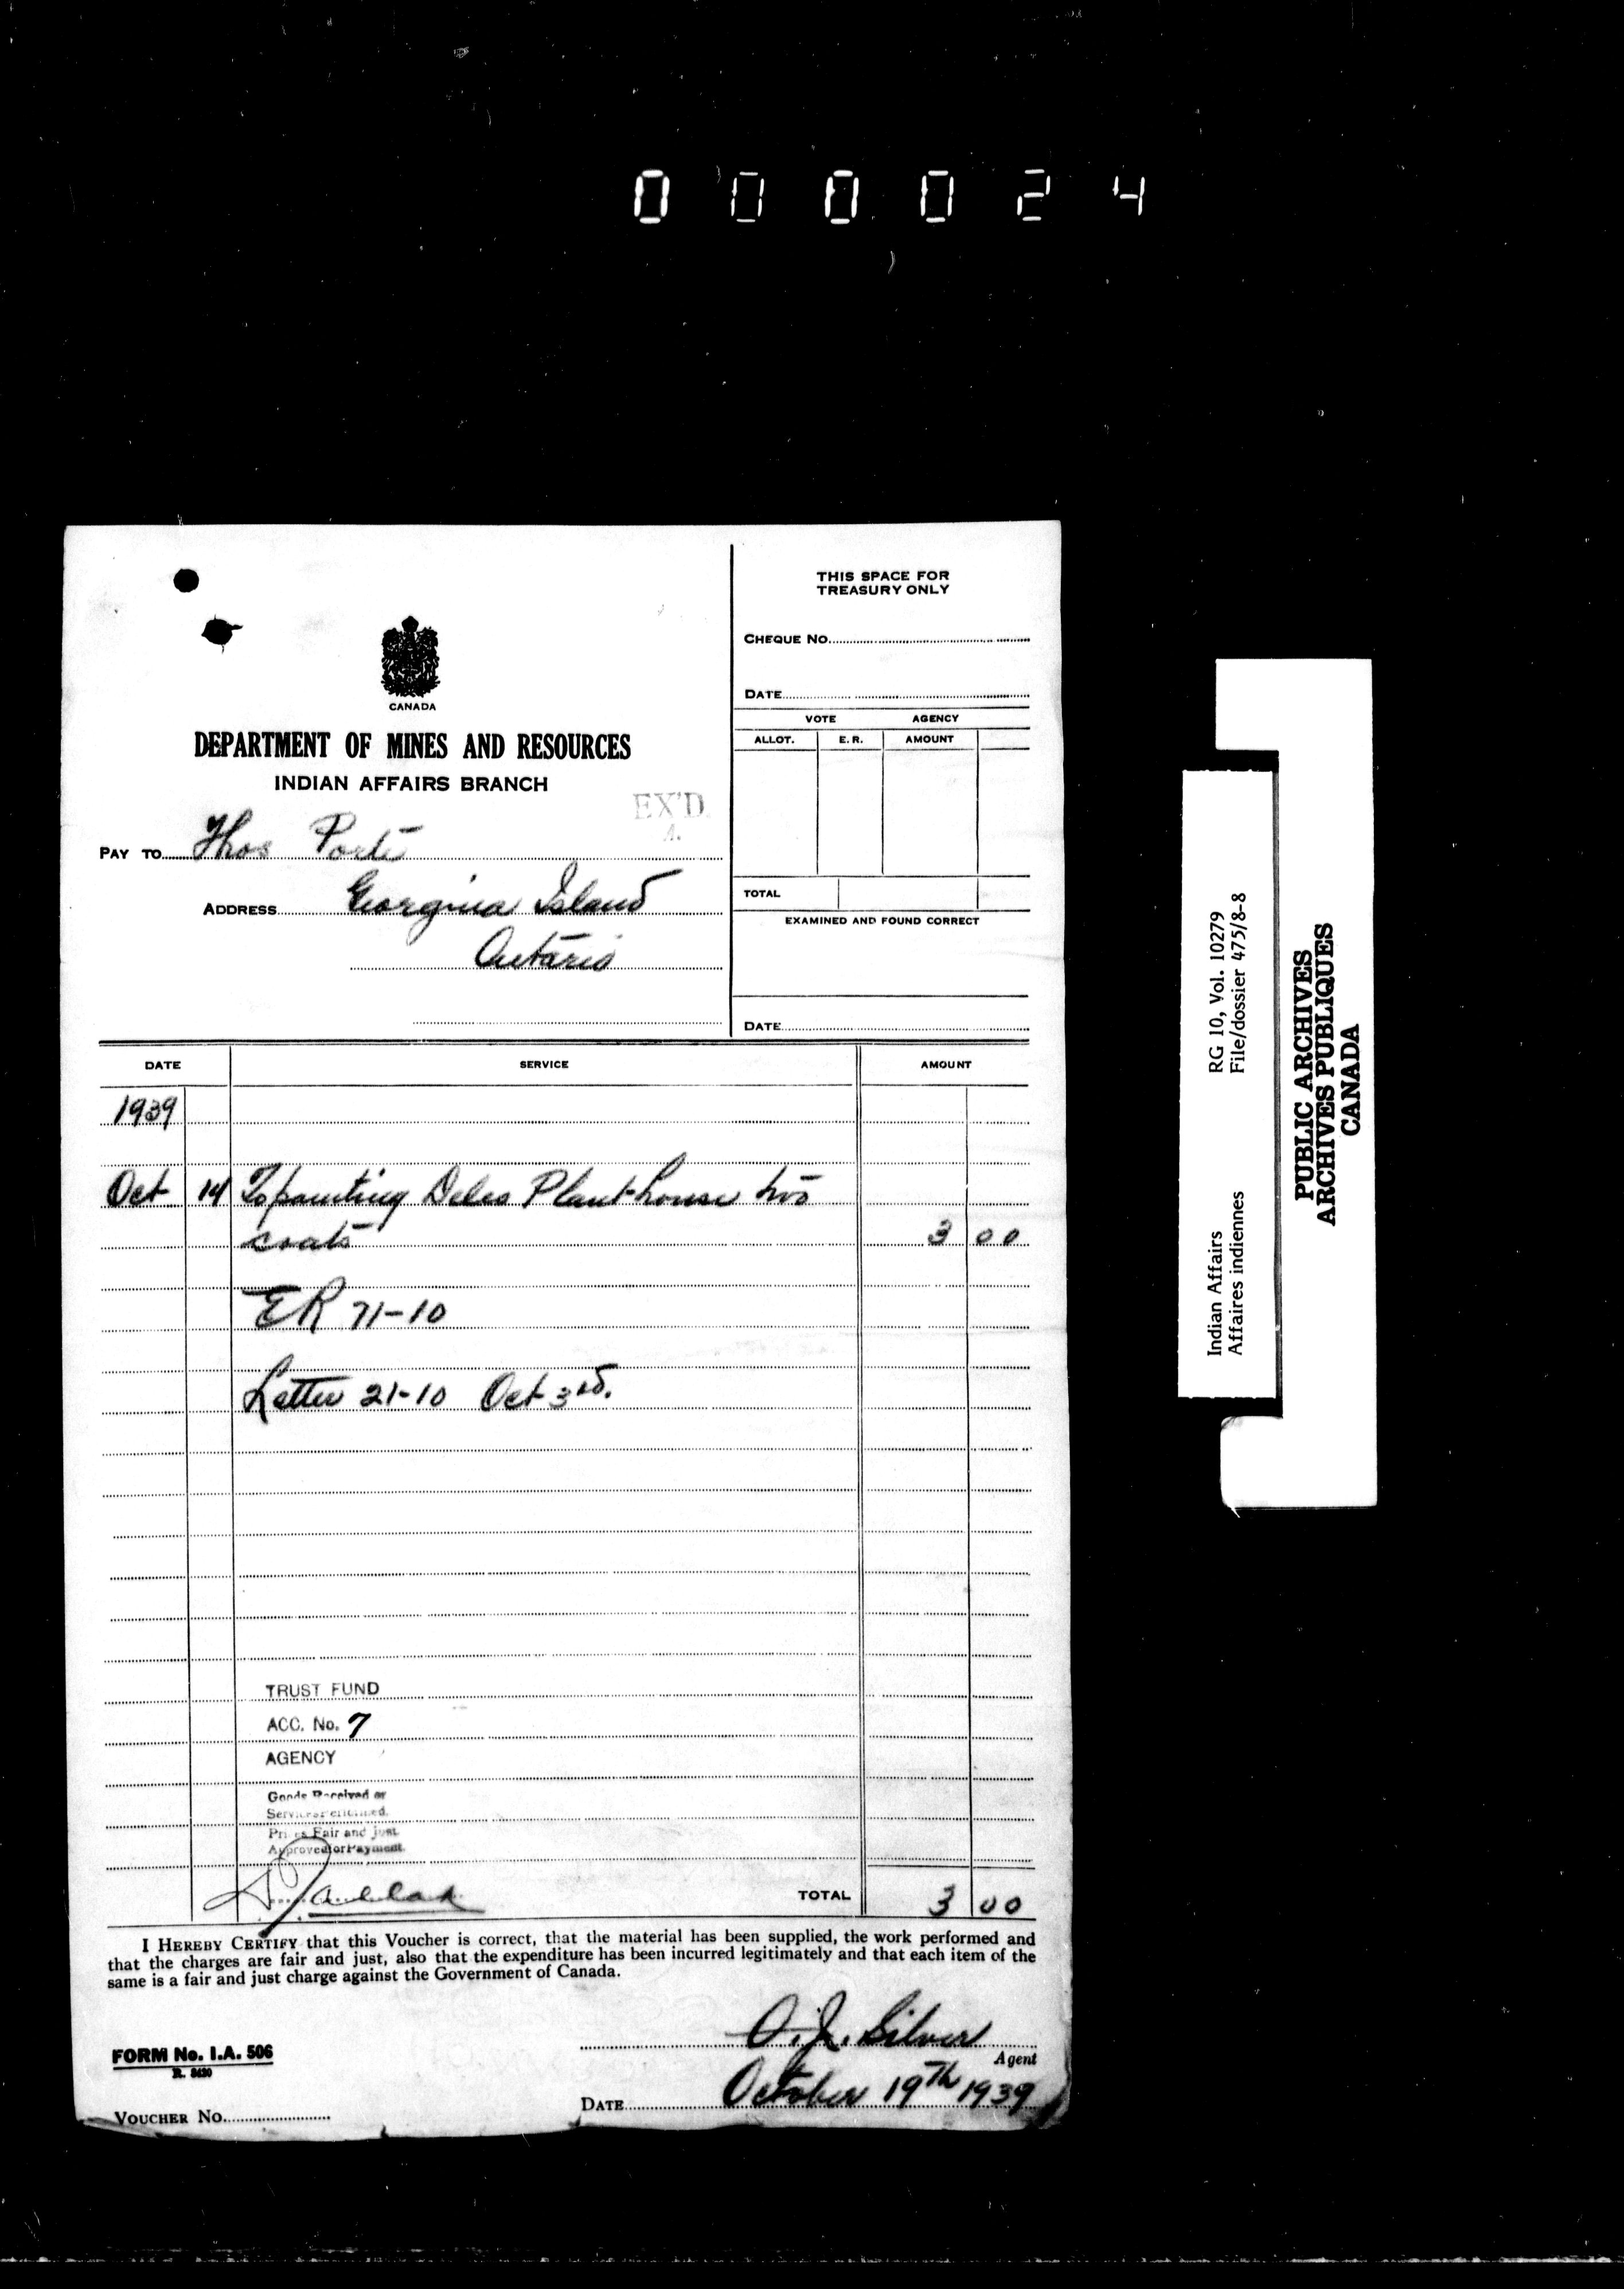 000024
THIS SPACE FOR
TREASURY ONLY
CHEQUE No.
DATE
VOTE AGENCY
ALLOT. E.R. AMOUNT
TOTAL
EXAMINED AND FOUND CORRECT
DATE
CANADA
DEPARTMENT OF MINES AND RESOURCES
INDIAN AFFAIRS BRANCH
EX'D.
PAY TO Thos Porte
ADDRESS Georgina Island
Ontario
DATE SERVICE AMOUNT
1939
Oct 14 To painting Delco Plant house two
coats 3 00
ER 71-10
Letter 21-10 Oct 3rd.
TRUST FUND
ACC. No. 7
AGENCY
Goods Received or
Services rendered.
Prices Fair and just
Approved for Payment
TOTAL 3 00
I HEREBY CERTIFY that this Voucher is correct, that the material has been supplied, the work performed and
that the charges are fair and just, also that the expenditure has been incurred legitimately and that each item of the
same is a fair and just charge against the Government of Canada.
Silver
Agent
FORM No. I.A. 506
R. 8420
DATE October 19th 1939
VOUCHER No.
Indian Affairs RG 10, Vol. 10279
Affaires indiennes File/dossier 475/8-8
PUBLIC ARCHIVES
ARCHIVES PUBLIQUES
CANADA